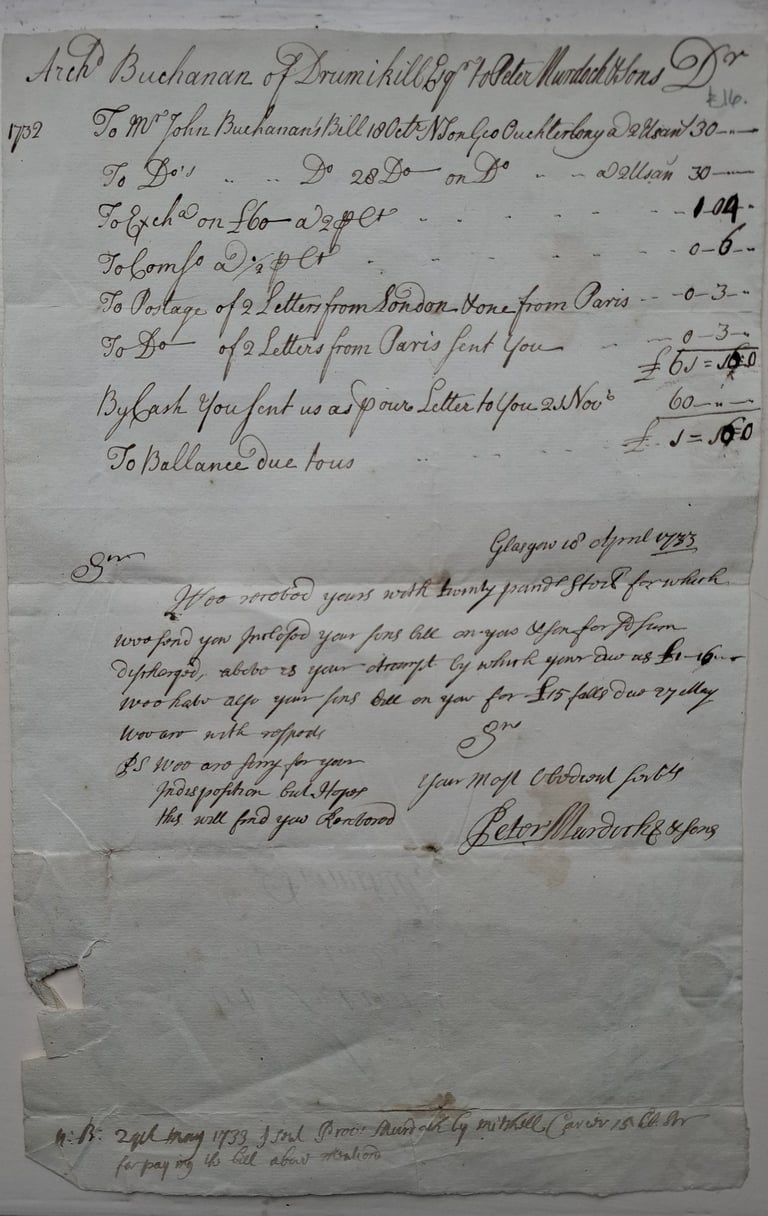 Archd Buchanan of Drumikill Esqr to Peter Murdoch & Sons Dr
£16.
1732 To Mr John Buchanan's Bill 18 Octr NS on Geo Ouchterlony a 2 Usan 30 - " - "
To Do's " " Do 28 Do on Do " " a 2 Usan 30 - " - "
To Excha on £60 a 2 p Ct 1 - 04 - "
To Comso a 1/2 p Ct 0 - 6 - "
To Postage of 2 Letters from London & one from Paris 0 - 3 - "
To Do of 2 Letters from Paris sent You 0 - 3 - "
£ 61 = 16 = 0
By Cash You sent us as p our Letter to You 21 Novr 60 - " - "
£ 1 = 16 = 0
To Ballance due to us
Glasgow 18 Aprill 1733
Sir
Wee received yours with twenty pound Ster for which
wee send you Inclosed your sons bill on you & son for sd sum
discharged, above is your accompt by which your due us £1-16-
wee have also your sons Bill on you for £15 falls due 27 May
wee are with respects
Sir
PS wee are sorry for your
Your Most Obedient Servts
Indisposition but Hopes
this will find you Recovered
Peter Murdoch & Sons
N: B: 29th May 1733 I sent Provt Murdoch by Mitchell Carier 15 lib Ster
for paying the bill above mentiond